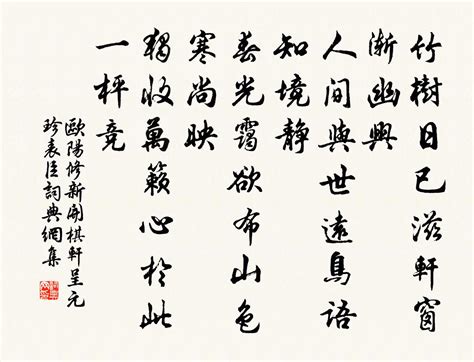 竹樹日已滋軒窗
漸幽興
人間與世遠鳥語
知境靜
春光靄欲布山色
寒尚映
獨收萬籟心於此
一枰竞
歐陽修新開棋軒呈元
珍表臣詞典網集